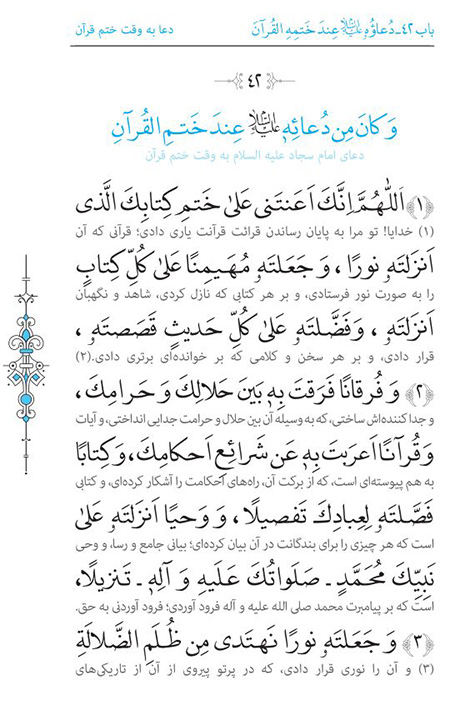 باب ۴۲ـ دُعاؤُهُ عليه‌السلام عِندَ خَتمِهِ القُرآنَ
دعا به وقت ختم قرآن
۴۲
وَ كانَ مِن دُعائِهِ عليه‌السلام عِندَ خَتمِ القُرآنِ
دعای امام سجاد علیه السلام به وقت ختم قرآن
﴿۱﴾ اَللّٰهُمَّ اِنَّكَ اَعَنتَنى عَلىٰ خَتمِ كِتابِكَ الَّذى
(۱) خدایا! تو مرا به پایان رساندن قرائت قرآنت یاری دادی؛ قرآنی که آن
اَنزَلتَهٗ نورًا ، وَ جَعَلتَهٗ مُهَيمِنًا عَلىٰ كُلِّ كِتابٍ
را به صورت نور فرستادی، و بر هر کتابی که نازل کردی، شاهد و نگهبان
اَنزَلتَهٗ ، وَ فَضَّلتَهٗ عَلىٰ كُلِّ حَديثٍ قَصَصتَهٗ ،
قرار دادی، و بر هر سخن و کلامی که بر خوانده‌ای برتری دادی.(۲)
﴿۲﴾ وَ فُرقانًا فَرَقتَ بِهٖ بَينَ حَلالِكَ وَ حَرامِكَ ،
و جدا کننده‌اش ساختی، که به وسیله آن بین حلال و حرامت جدایی انداختی، و آیات
وَ قُرآنًا اَعرَبتَ بِهٖ عَن شَرائِعِ اَحكامِكَ، وَ كِتابًا
به هم پیوسته‌ای است، که از برکت آن، راه‌های احکامت را آشکار کرده‌ای، و کتابی
فَصَّلتَهٗ لِعِبادِكَ تَفصيلًا ، وَ وَحيًا اَنزَلتَهٗ عَلىٰ
است که هر چیزی را برای بندگانت در آن بیان کرده‌ای؛ بیانی جامع و رسا، و وحی
نَبِيِّكَ مُحَمَّدٍ ـ صَلَواتُكَ عَلَيهِ وَ آلِهٖ ـ تَنزيلًا،
است که بر پیامبرت محمد صلی الله علیه و آله فرود آوردی؛ فرود آوردنی به حق.
﴿۳﴾ وَ جَعَلتَهٗ نورًا نَهتَدى مِن ظُلَمِ الضَّلالَةِ
(۳) و آن را نوری قرار دادی، که در پرتو پیروی از آن از تاریکی‌های